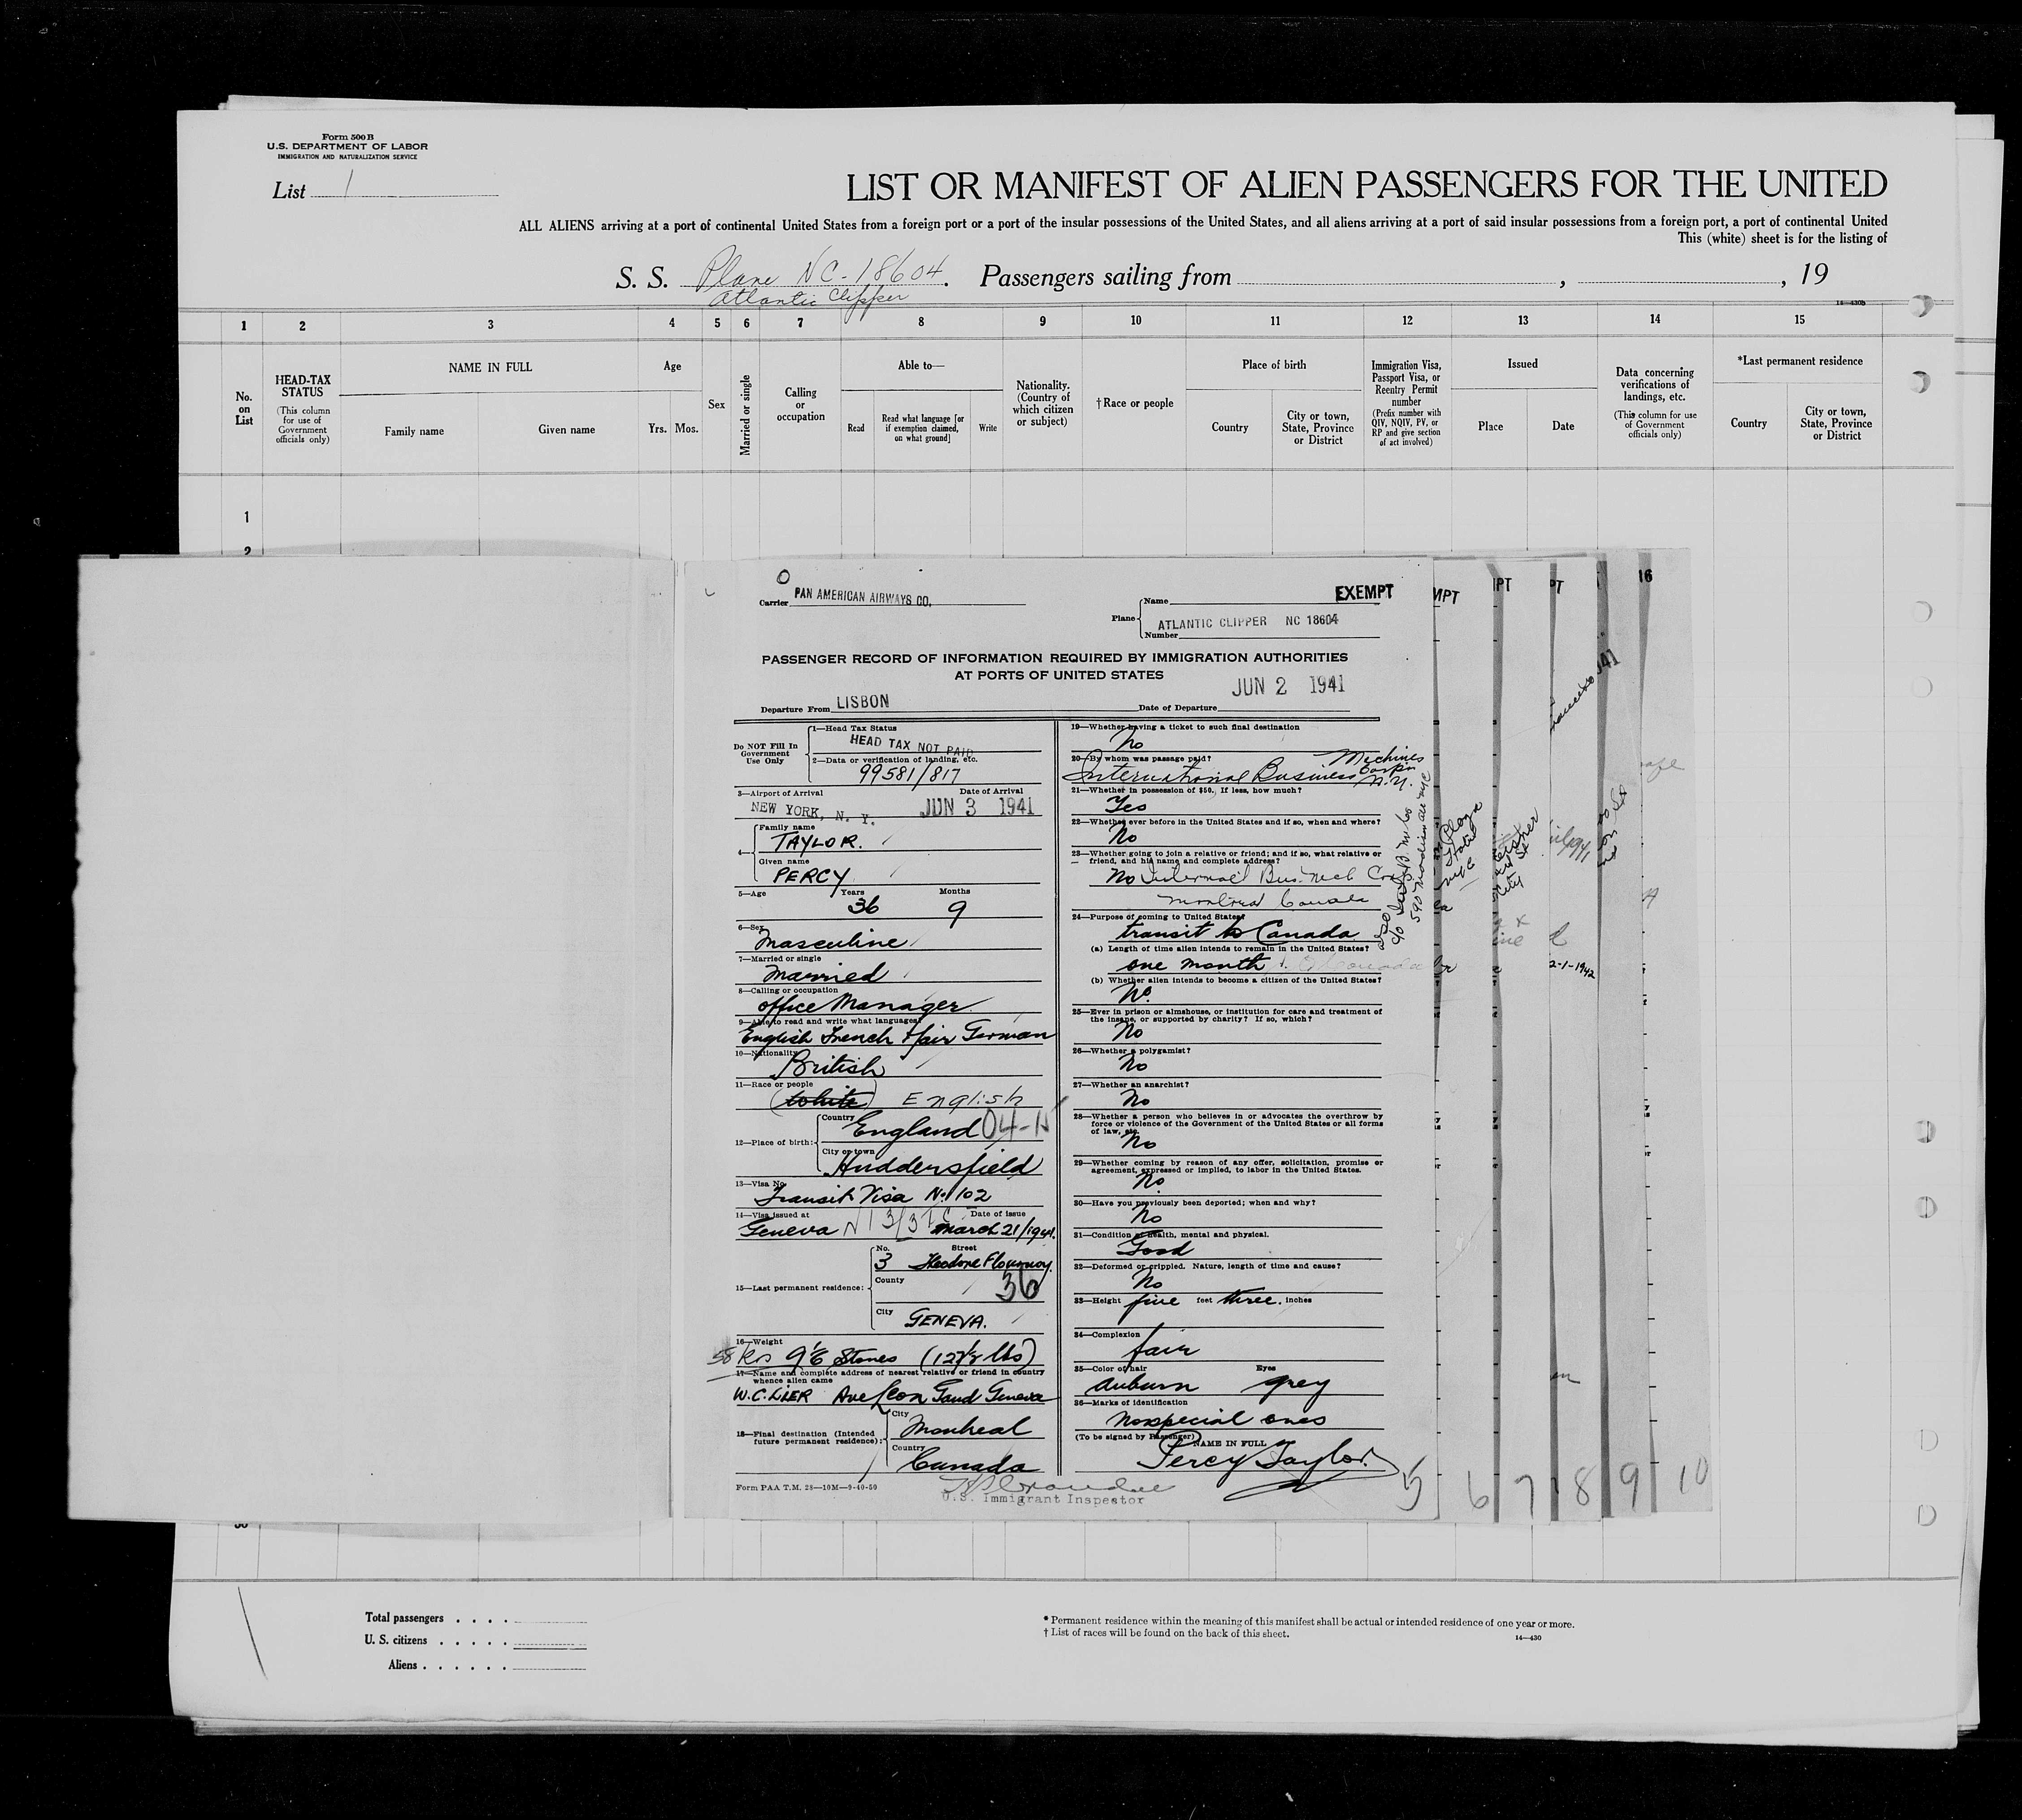 Form 500 B
U.S. DEPARTMENT OF LABOR
IMMIGRATION AND NATURALIZATION SERVICE
List 1
LIST OR MANIFEST OF ALIEN PASSENGERS FOR THE UNITED
ALL ALIENS arriving at a port of continental United States from a foreign port or a port of the insular possessions of the United States, and all aliens arriving at a port of said insular possessions from a foreign port, a port of continental United
This (white) sheet is for the listing of
S. S. Plane NC-18604. Passengers sailing from , , 19
Atlantic Clipper
14—430B
1 2 3 4 5 6 7 8 9 10 11 12 13 14 15
No. on List
HEAD-TAX STATUS
(This column for use of Government officials only)
NAME IN FULL
Family name Given name
Age
Yrs. Mos.
Sex
Married or single
Calling or occupation
Able to—
Read
Read what language [or if exemption claimed, on what ground]
Write
Nationality. (Country of which citizen or subject)
†Race or people
Place of birth
Country
City or town, State, Province or District
Immigration Visa, Passport Visa, or Reentry Permit number
(Prefix number with QIV, NQIV, PV, or RP and give section of act involved)
Issued
Place Date
Data concerning verifications of landings, etc.
(This column for use of Government officials only)
*Last permanent residence
Country
City or town, State, Province or District
1
2
Carrier PAN AMERICAN AIRWAYS CO.
EXEMPT
Plane
Name
ATLANTIC CLIPPER NC 18604
Number
PASSENGER RECORD OF INFORMATION REQUIRED BY IMMIGRATION AUTHORITIES
AT PORTS OF UNITED STATES
JUN 2 1941
Departure From LISBON Date of Departure
Do NOT Fill In Government Use Only
1—Head Tax Status
HEAD TAX NOT PAID
2—Data or verification of landing, etc.
99581/817
3—Airport of Arrival Date of Arrival
NEW YORK, N. Y. JUN 3 1941
4—
Family name
TAYLOR.
Given name
PERCY
5—Age Years Months
36 9
6—Sex
Masculine
7—Married or single
Married
8—Calling or occupation
office Manager
9—Able to read and write what languages?
English French & fair German
10—Nationality
British
11—Race or people
(White) English
12—Place of birth:
Country
England 04-
City or town
Huddersfield
13—Visa No.
Transit Visa No. 102
14—Visa issued at Date of issue
Geneva March 21/1941.
15—Last permanent residence:
No. Street
3 Theodore Flournoy.
County
36
City
GENEVA.
16—Weight
58 Kos Stones
17—Name and complete address of nearest relative or friend in country
whence alien came
W.C. LIER Ave Leon Gaud Geneva
18—Final destination (Intended
future permanent residence):
City
Montreal
Country
Canada
Form PAA T.M. 28—10M—9-40-50
U.S. Immigrant Inspector
19—Whether having a ticket to such final destination
No
20—By whom was passage paid?
International Business Machines Corpn N.Y.
21—Whether in possession of $50. If less, how much?
Yes
22—Whether ever before in the United States and if so, when and where?
No
23—Whether going to join a relative or friend; and if so, what relative or
friend, and his name and complete address?
No Internat'l Bus. Mch Co
Montreal Canada
24—Purpose of coming to United States?
transit to Canada
(a) Length of time alien intends to remain in the United States?
one month
(b) Whether alien intends to become a citizen of the United States?
No.
25—Ever in prison or almshouse, or institution for care and treatment of
the insane, or supported by charity? If so, which?
No
26—Whether a polygamist?
No
27—Whether an anarchist?
No
28—Whether a person who believes in or advocates the overthrow by
force or violence of the Government of the United States or all forms
of law, etc.
No
29—Whether coming by reason of any offer, solicitation, promise or
agreement, expressed or implied, to labor in the United States.
No.
30—Have you previously been deported; when and why?
No
31—Condition of health, mental and physical.
Good
32—Deformed or crippled. Nature, length of time and cause?
No
33—Height five feet three. inches
34—Complexion
fair
35—Color of hair Eyes
auburn grey
36—Marks of identification
No special ones
(To be signed by Passenger) NAME IN FULL
Percy Taylor.
590 Madison Ave NYC
2-1-1942
16
5 6 7 8 9 10
Total passengers
U. S. citizens
Aliens
* Permanent residence within the meaning of this manifest shall be actual or intended residence of one year or more.
† List of races will be found on the back of this sheet.
14—430